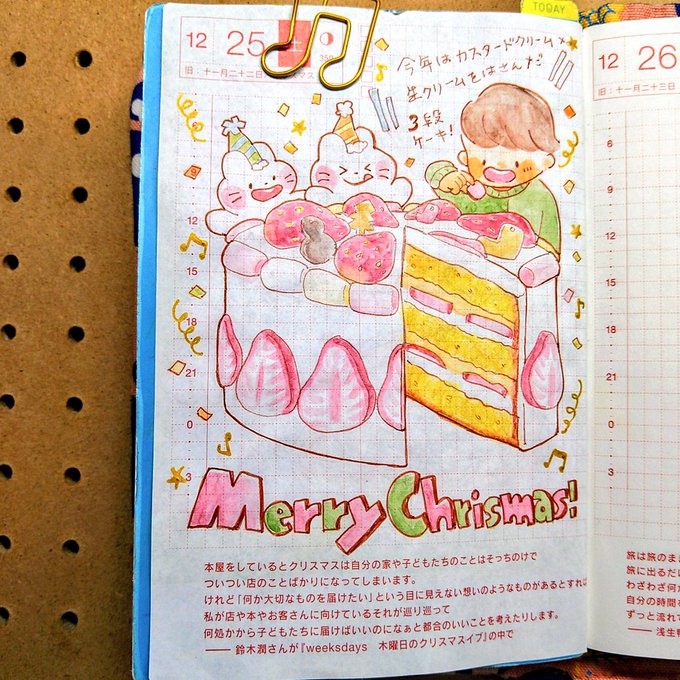 TODAY
12 25 土
旧：十一月二十二日
今年はカスタードクリームと
生クリームをはさんだ
3段
ケーキ!
9
12
15
18
21
0
3
Merry Chrismas!
本屋をしているとクリスマスは自分の家や子どもたちのことはそっちのけで
ついつい店のことばかりになってしまいます。
けれど「何か大切なものを届けたい」という目に見えない想いのようなものがあるとすれば
私が店や本やお客さんに向けているそれが巡り巡って
何処かから子どもたちに届けばいいのになぁと都合のいいことを考えたりします。
—— 鈴木潤さんが『weeksdays　木曜日のクリスマスイブ』の中で
12 26
旧：十一月二十三日
6
9
12
15
18
21
0
3
旅は旅のま
旅に出るだけ
わざわざ何か
自分の時間を
ずっと流れて
—— 浅生